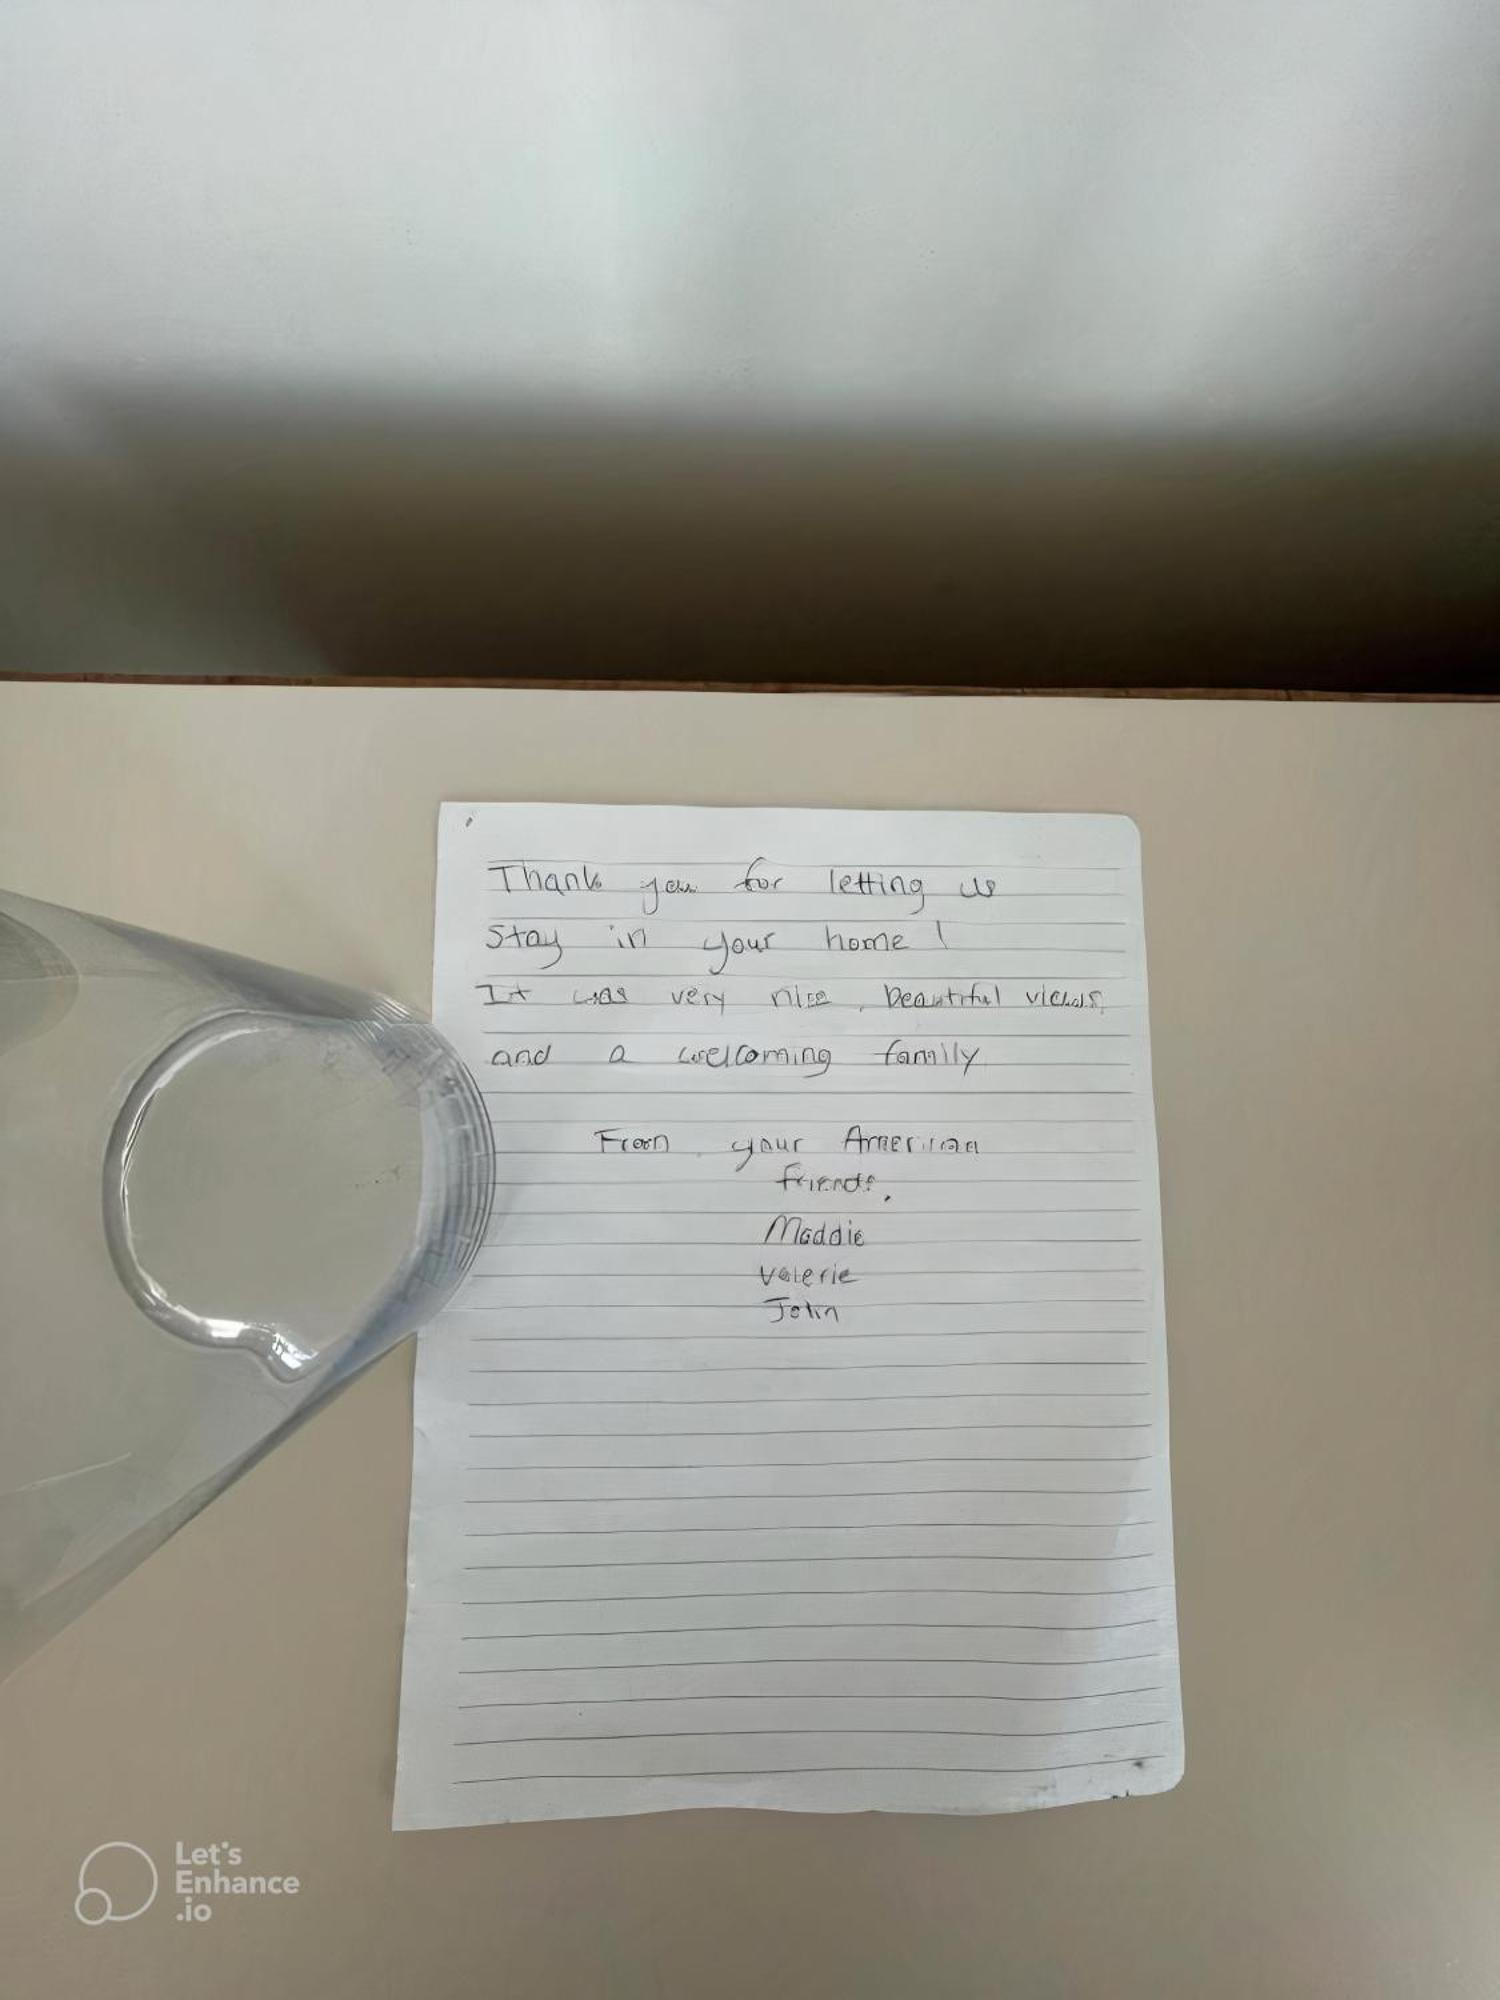 Thank you for letting us
stay in your home!
It was very nice, beautiful views,
and a welcoming family
From your American
friends,
Maddie
Valerie
John
Let's
Enhance
.io